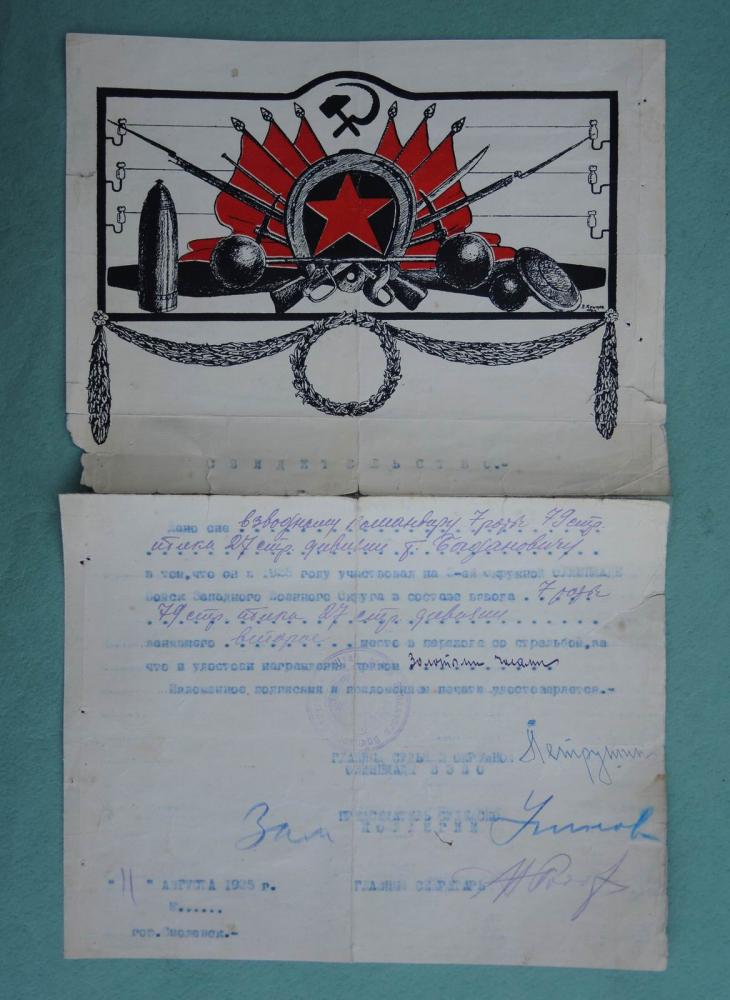 СВИДЕТЕЛЬСТВО.-
Дано сие взводному командиру 7 роты 79 стр.
полка 27 стр. дивизии т.
в том, что он в 1925 году участвовал на 2-ой окружной ОЛИМПИАДЕ
Войск Западного Военного Округа в составе взвода 7 роты
79 стр. полка 27 стр. дивизии
занявшего второе место в переходе со стрельбой, за
что и удостоен награждения призом золотыми часами
Изложенное, подписями и приложением печати удостоверяется.-
ГЛАВНЫЙ СУДЬЯ ОКРУЖНОЙ
ОЛИМПИАДЫ ЗВО
ПРЕДСЕДАТЕЛЬ СУДЕЙСКОЙ
Зам КОЛЛЕГИИ
"11" АВГУСТА 1925 г. ГЛАВНЫЙ СЕКРЕТАРЬ
гор. Смоленск.-